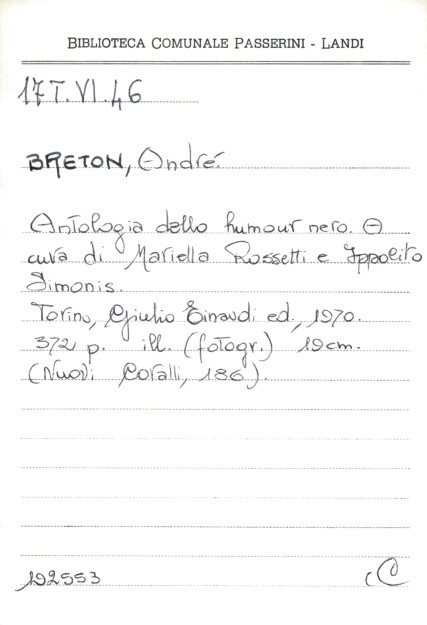 BIBLIOTECA COMUNALE PASSERINI - LANDI
17 T.VI.46
BRETON, André.
Antologia dello humour nero. A
cura di Mariella Rossetti e Ippolito
Simonis.
Torino, Giulio Einaudi ed., 1970.
372 p. ill. (fotogr.) 19 cm.
(Nuovi Coralli, 186).
192553 C